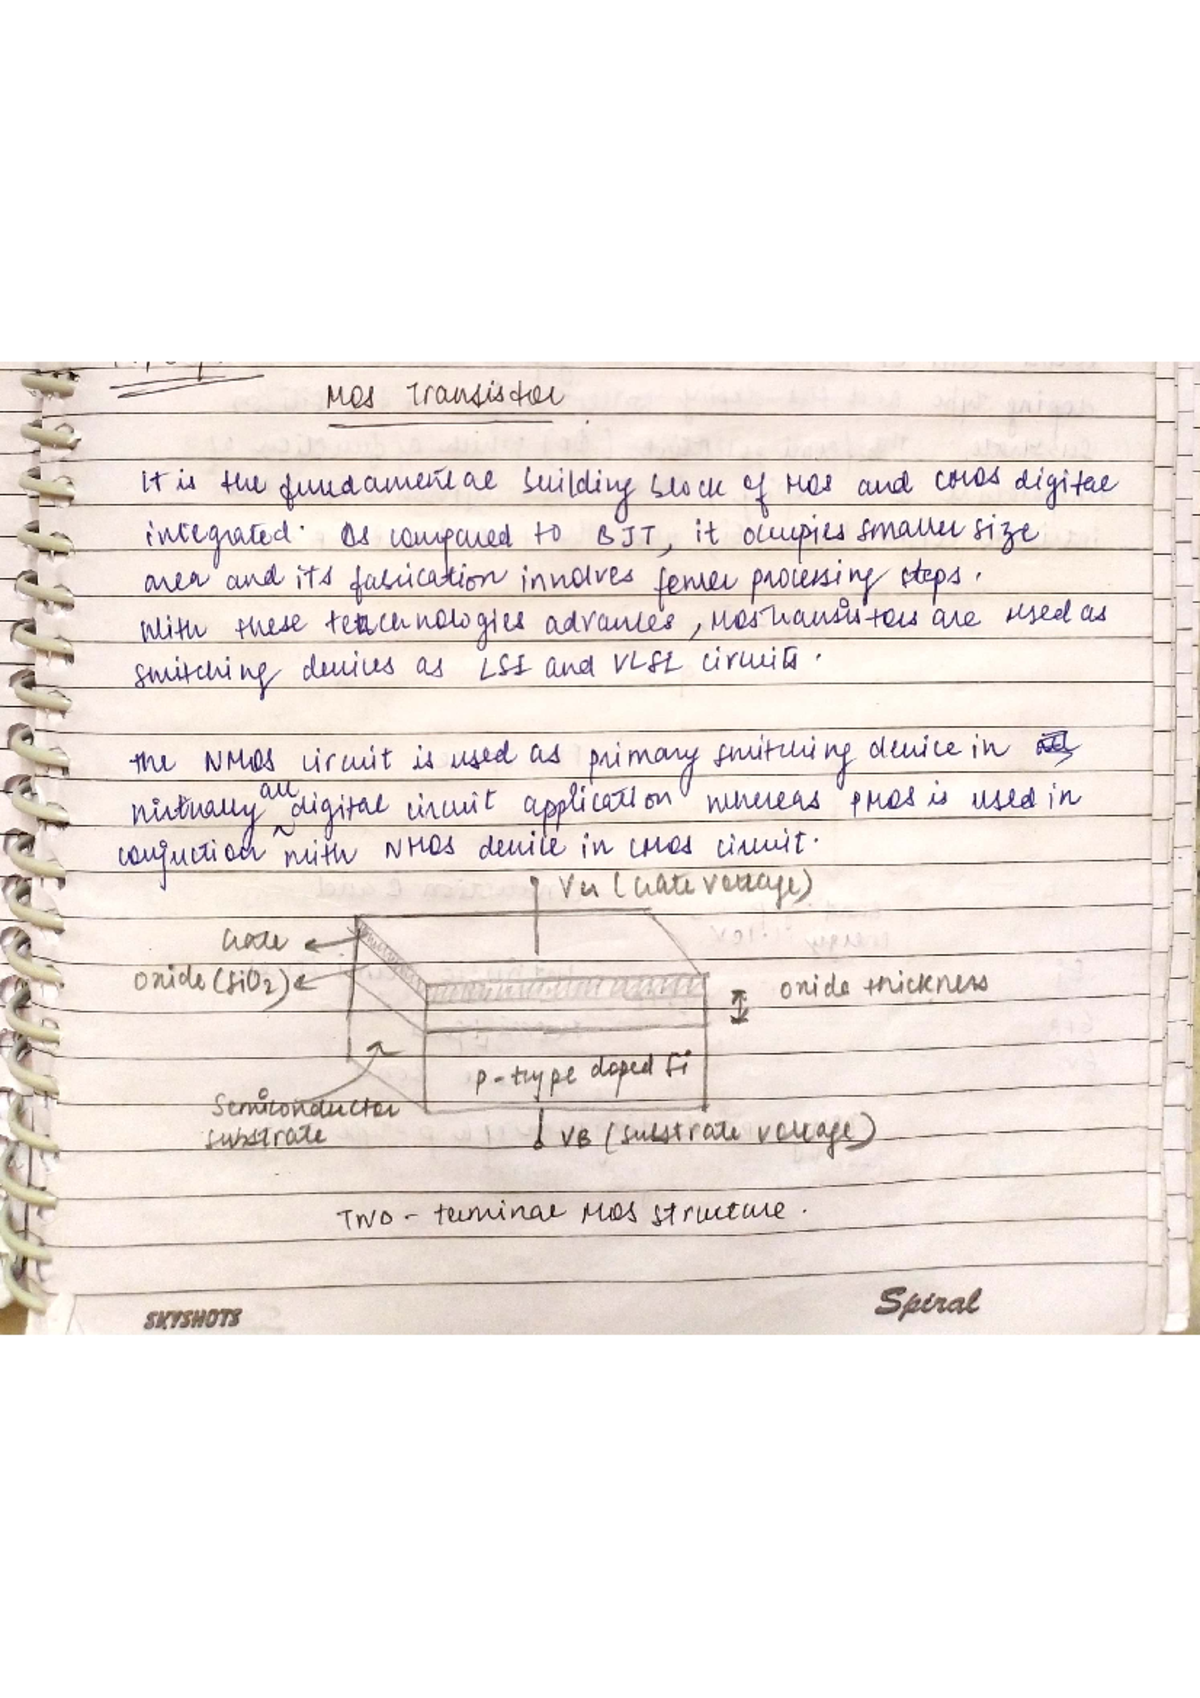 MOS Transistor
It is the fundamental building block of MOS and CMOS digital
integrated. As compared to BJT, it occupies smaller size
area and its fabrication involves fewer processing steps.
With these technologies advances, MOS transistors are used as
switching devices as LSI and VLSI circuits.
The NMOS circuit is used as primary switching device in
virtually all digital circuit application whereas PMOS is used in
conjuction with NMOS device in CMOS circuit.
VG (Gate voltage)
Gate
Oxide (SiO2)
oxide thickness
P-type doped Si
Semiconductor
substrate
VB (Substrate voltage)
Two-terminal MOS structure.
SKYSHOTS
Spiral